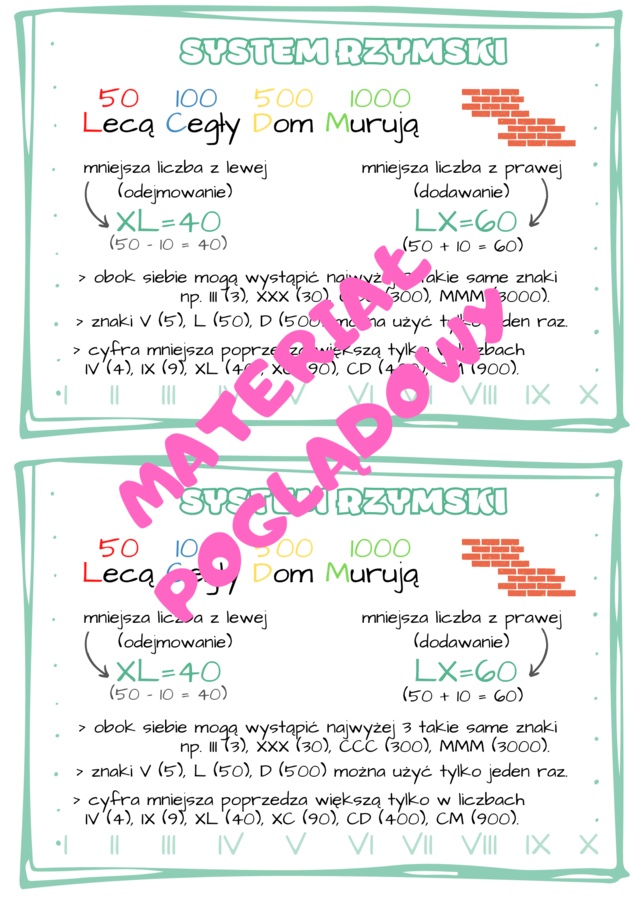 SYSTEM RZYMSKI
50 100 500 1000
Lecą Cegły Dom Murują
mniejsza liczba z lewej
(odejmowanie)
XL=40
(50 - 10 = 40)
mniejsza liczba z prawej
(dodawanie)
LX=60
(50 + 10 = 60)
> obok siebie mogą wystąpić najwyżej takie same znaki
np. III (3), XXX (30), (300), MMM (3000).
> znaki V (5), L (50), D (500) można użyć tylko jeden raz.
> cyfra mniejsza poprzedza większą tylko w liczbach
IV (4), IX (9), XL (40), XC (90), CD (400), CM (900).
I II III IV V VI VII VIII IX X
MATERIAŁ
POGLĄDOWY
SYSTEM RZYMSKI
50 100 500 1000
Lecą Cegły Dom Murują
mniejsza liczba z lewej
(odejmowanie)
XL=40
(50 - 10 = 40)
mniejsza liczba z prawej
(dodawanie)
LX=60
(50 + 10 = 60)
> obok siebie mogą wystąpić najwyżej 3 takie same znaki
np. III (3), XXX (30), CCC (300), MMM (3000).
> znaki V (5), L (50), D (500) można użyć tylko jeden raz.
> cyfra mniejsza poprzedza większą tylko w liczbach
IV (4), IX (9), XL (40), XC (90), CD (400), CM (900).
I II III IV V VI VII VIII IX X